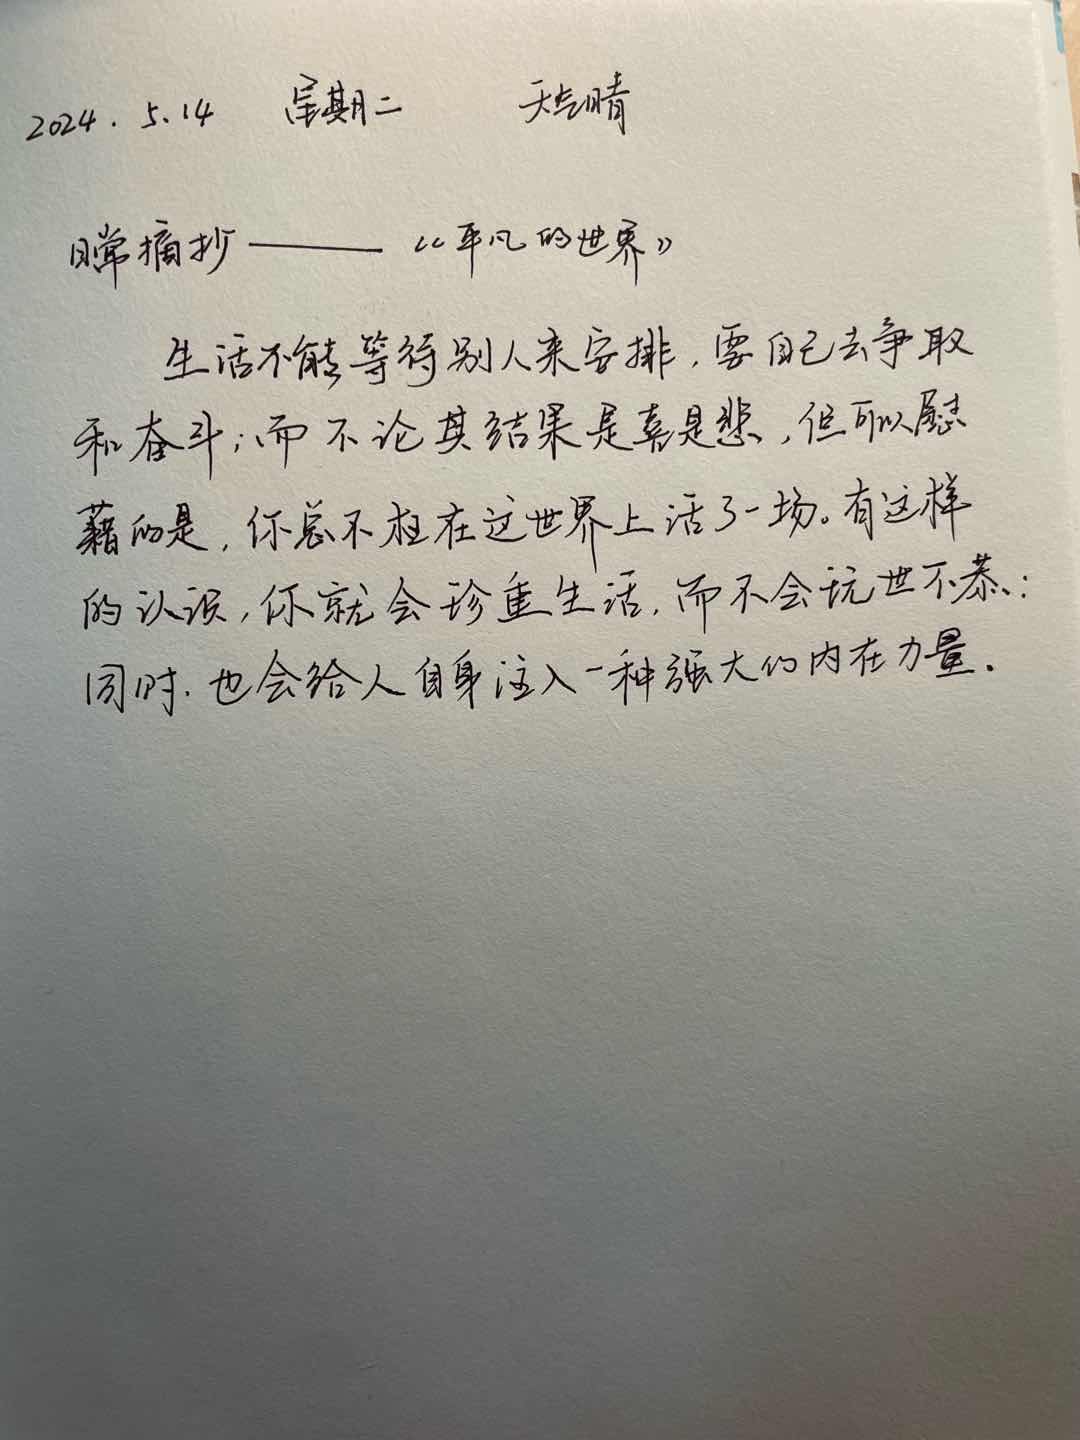 2024.5.14 星期二 天气晴
日常摘抄——《平凡的世界》
生活不能等待别人来安排，要自己去争取
和奋斗；而不论其结果是喜是悲，但可以慰
藉的是，你总不枉在这世界上活了一场。有这样
的认识，你就会珍重生活，而不会玩世不恭；
同时，也会给人自身注入一种强大的内在力量。